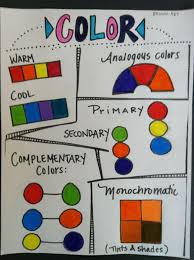 COLOR
WARM
COOL
Analogous colors
PRIMARY
SECONDARY
COMPLEMENTARY
COLORS:
Monochromatic
(Tints & Shades)